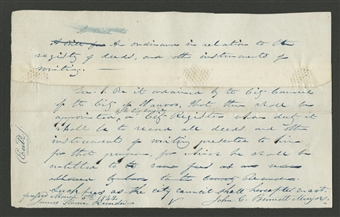 An ordinance in relation to the
registry of deeds, and other instruments of
writing.
Sec. 1. Be it ordained by the City Council
of the City of Houston, that there shall be
appointed, a City Register, whose duty it
shall be to record all deeds and other
instruments of writing presented to him
for that purpose, for which he shall be
entitled to the same fees as are now
allowed by law to the County
such fees as the city council shall hereafter enact.
passed March 5th 1842
John Mayor.